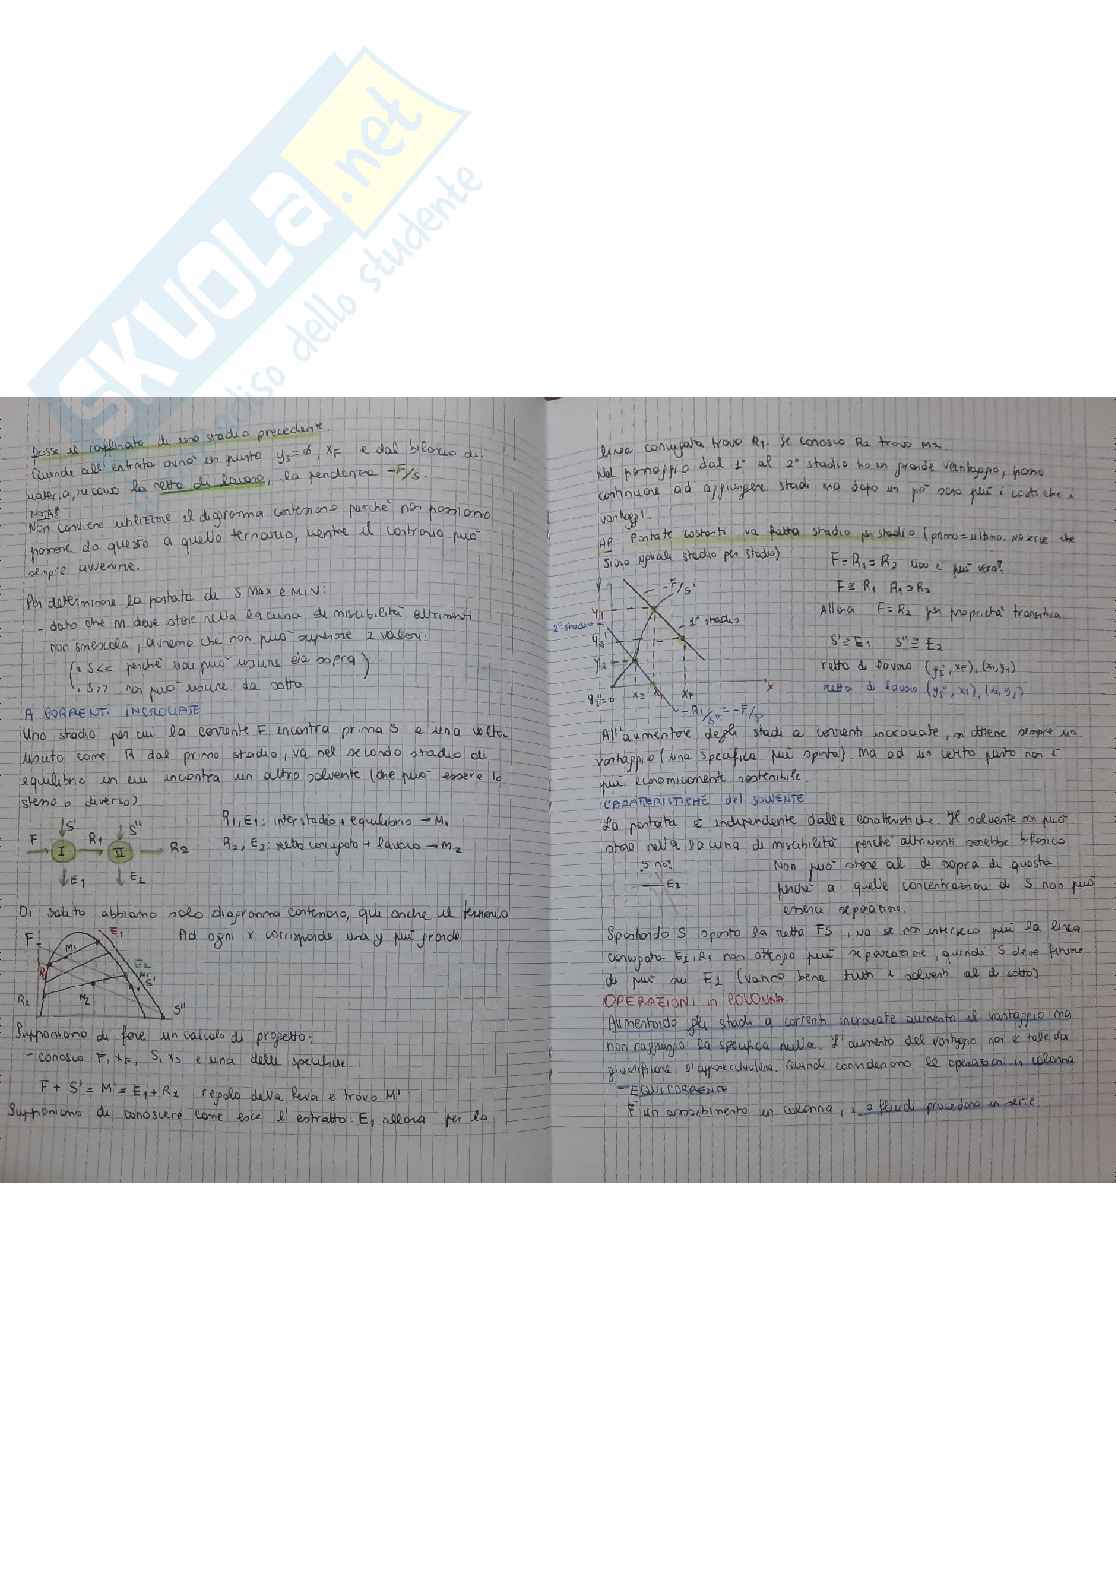 SKUOLA.net
paradiso dello studente
fosse il raffinato di uno stadio precedente
Quindi all'entrata avrò un punto ys=0, xF e dal bilancio di
materia, ricavo la retta di lavoro, la pendenza -F/S.
Non conviene utilizzare il diagramma cartesiano perché non possiamo
passare da questo a quello ternario, mentre il contrario può
sempre avvenire.
Per determinare la portata di S MAX e MIN:
- dato che M deve stare nella lacuna di miscibilità altrimenti
non smescola, avremo che non può superare 2 valori.
S<< perché non può uscire da sopra
S>> non può uscire da sotto
A CORRENTI INCROCIATE
Uno stadio per cui la corrente F incontra prima S e una volta
uscito come R dal primo stadio, va nel secondo stadio di
equilibrio in cui incontra un altro solvente (che può essere lo
stesso o diverso)
F S' R1 S'' R2
I II
E1 E2
R1, E1: interstadio + equilibrio → M1
R2, E2: retta coniugata + lavoro → M2
Di solito abbiamo solo diagramma cartesiano, qui anche il ternario
Ad ogni x corrisponde una y più grande
F M1 E1
R1 E2
M2 S'
R2 S''
Supponiamo di fare un calcolo di progetto:
- conosco F, xF, S, ys e una delle specifiche
F + S' = M' = E1 + R2 regola della leva e trovo M'
Supponiamo di conoscere come esce l'estratto E1 allora per la
linea coniugata trovo R1. Se conosco R2 trovo M2
Nel passaggio dal 1° al 2° stadio ho un grande vantaggio, posso
continuare ad aggiungere stadi ma dopo un po' sono più i costi che i
vantaggi.
HP Portate costanti da stadio per stadio (primo=ultimo. No erre che
siano uguali stadio per stadio)
F=R1=R2 non è più vera?
F≅R1 R1≅R2
Allora F=R2 per proprietà transitiva
S'≅E1 S''≅E2
retta di lavoro (ys', xF), (x1, y1)
retta di lavoro (ys'', x1), (x2, y2)
y -F/S'
y1
2° stadio 1° stadio
ys
y2
ys''=0 x2 x1 xF x
-R1/S'' = -F/S
All'aumentare degli stadi a correnti incrociate, si ottiene sempre un
vantaggio (una specifica più spinta) ma ad un certo punto non è
più economicamente sostenibile.
CARATTERISTICHE del SOLVENTE
La portata è indipendente dalle caratteristiche. Il solvente non può
stare nella lacuna di miscibilità perché altrimenti sarebbe bifasico
S no!
E2
Non può stare al di sopra di questa
perché a quelle concentrazioni di S non può
essere separatore.
Spostando S sposto la retta FS, ma se non interseco più la linea
coniugata E2, R2 non ottengo più separazione, quindi S deve fermarsi
di più su E2 (vanno bene tutti i solventi al di sotto)
OPERAZIONI in COLONNA
Aumentando gli stadi a correnti incrociate aumenta il vantaggio ma
non raggiungo la specifica nulla. L'aumento del vantaggio non è tale da
giustificare l'apparecchiatura. Quindi consideriamo le operazioni in colonna
- EQUICORRENTE
È un arricchimento in colonna, i 2 fluidi procedono in serie